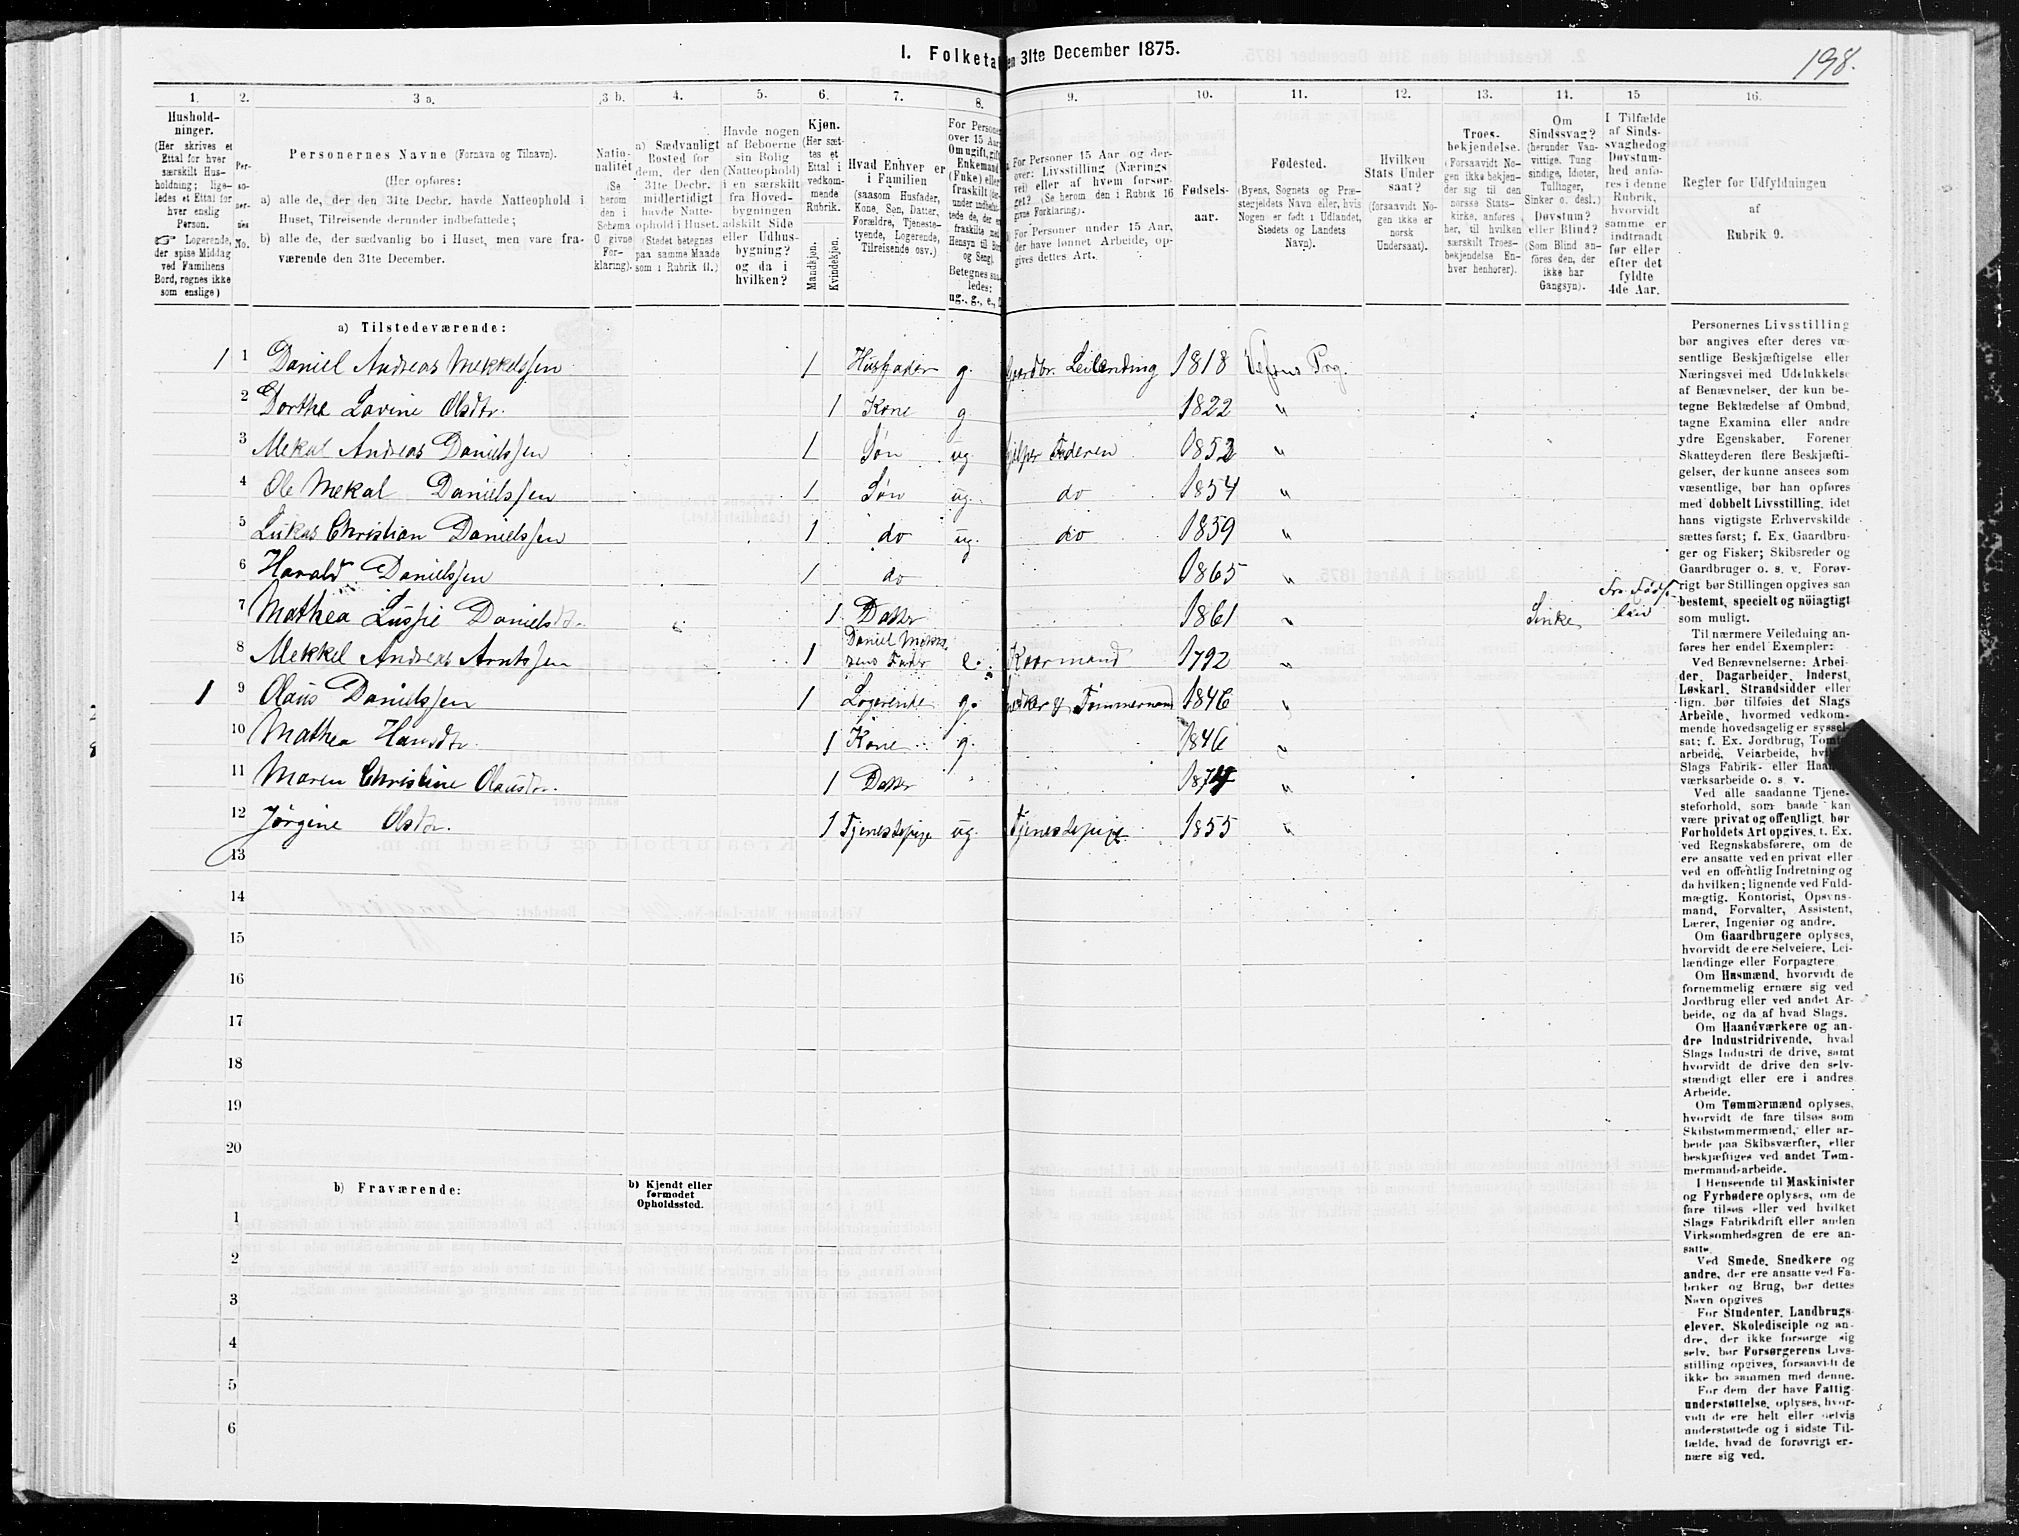 198.
I. Folketa en 31te December 1875.
1. 2. 3 a. 3 b. 4. 5. 6. 7. 8. 9. 10. 11. 12. 13. 14. 15 16.
Hushold-
ninger.
(Her skrives et
Ettal for hver
særskilt Hus-
holdning; lige-
ledes et Ettal for
hver enslig
Person.
☞ Logerende,
der spise Middag
ved Familiens
Bord, regnes ikke
som enslige)
Per-
so-
ner-
nes
No.
Personernes Navne (Fornavn og Tilnavn).
(Her opføres:
a) alle de, der den 31te Decbr. havde Natteophold i
Huset, Tilreisende derunder indbefattede;
b) alle de, der sædvanlig bo i Huset, men vare fra-
værende den 31te December.
Natio-
nalitet
(Se
herom
den i
Schema
givne
For-
klaring).
a) Sædvanligt
Bosted for
dem, der den
31te Decbr.
midlertidigt
havde Natte-
ophold i Huset.
(Stedet betegnes
paa samme Maade
som i Rubrik 11.)
Havde nogen
af Beboerne
sin Bolig
(Natteophold)
i en særskilt
fra Hoved-
bygningen
adskilt Side
eller Udhus-
bygning?
og da i
hvilken?
Kjøn.
(Her sæt-
tes et
Ettal i
vedkom-
mende
Rubrik.
Mandkjøn.
Kvindekjøn.
Hvad Enhver er
i Familien
(saasom Husfader,
Kone, Søn, Datter,
Forældre, Tjeneste-
tyende, Logerende,
Tilreisende osv.)
For Persone
over 15 Aar
Om ugift, gift,
Enkemand
(Enke) elle
fraskilt
Betegnes saa-
ledes:
ug., g., e.,
For Personer 15 Aar og der-
over: Livsstilling (Nærings
vei) eller af hvem forsør-
get? (Se herom den i Rubrik 16
givne Forklaring).
For Personer under 15 Aar,
der have lønnet Arbeide, op-
gives dettes Art.
Fødsels-
aar.
Fødested.
(Byens, Sognets og Præ-
stegjeldets Navn eller, hvis
Nogen er født i Udlandet,
Stedets og Landets
Navn).
Hvilken
Stats Under
saat?
(forsaavidt No-
gen ikke er
norsk
Undersaat).
Troes-
bekjendelse.
(Forsaavidt No-
gen ikke bekjen-
der sig til den
norske Stats-
kirke, anføres
her, til hvilken
særskilt Troes-
bekjendelse En-
hver henhører).
Om
Sindssvag?
(herunder Van-
vittige, Tung
sindige, Idioter,
Tullinger,
Sinker o. desl.)
Døvstum?
eller Blind?
(Som Blind an-
føres den, der
ikke har
Gangsyn).
I Tilfælde
af Sinds-
svaghed og
Døvstum-
hed anfø-
res i denne
Rubrik,
hvorvidt
samme er
indtraadt
før eller
efter det
fyldte
4de Aar.
Regler for Udfyldningen
af
Rubrik 9.
a) Tilstedeværende:
1 1 Daniel Andreas Mekkelssen 1 Husfader g. Gaardbr. Leilending 1818 Vefsns Prg.
2 Dorthe Lovine Olsdtr. 1 Kone g. 1822 "
3 Mekal Andreas Danielssen 1 Søn ug hjelper Faderen 1852 "
4 Ole Mekal Danielssen 1 Søn ug. do 1854 "
5 Lukas Christian Danielssen 1 do ug. do 1859 "
6 Harald Danielssen 1 do 1865 "
7 Mathea Lussie Danielsdtr. 1 Datter 1861 " Sinke Fra Fødse
len
8 Mekkel Andreas Arntssen 1 Daniel Mekkel
sens Fader e. Kaarmand 1792 "
1 9 Olaus Danielssen 1 Logerende g. Snedker & Tømmermand 1846 "
10 Mathea Hansdtr. 1 Kone g. 1846 "
11 Maren Christine Olausdtr. 1 Datter 1874 "
12 Jørgine Olsdtr. 1 Tjenestepige ug. Tjenestepige 1855 "
13
14
15
16
17
18
19
20
b) Fraværende:
b) Kjendt eller
formodet
Opholdssted.
1
2
3
4
5
6
Personernes Livsstilling
bør angives efter deres væ-
sentlige Beskjæftigelse eller
Næringsvei med Udelukkelse
af Benævnelser, der kun be-
tegne Beklædelse af Ombud,
tagne Examina eller andre
ydre Egenskaber. Forener
Skatteyderen flere Beskjæfti-
gelser, der kunne ansees som
væsentlige, bør han opføres
med dobbelt Livsstilling, idet
hans vigtigste Erhvervskilde
sættes først; f. Ex. Gaardbru-
ger og Fisker; Skibsreder og
Gaardbruger o. s. v. Forøv-
rigt bør Stillingen opgives saa
bestemt, specielt og nöiagtigt
som muligt.
Til nærmere Veiledning an-
føres her endel Exempler:
Ved Benævnelserne: Arbei-
der, Dagarbeider, Inderst,
Løskarl, Strandsidder eller
lign. bør tilføies det Slags
Arbeide, hvormed vedkom-
mende hovedsagelig er syssel-
sat; f. Ex. Jordbrug, Tomte-
arbeide, Veiarbeide, hvilket
Slags Fabrik- eller Haand-
værksarbeide o. s. v.
Ved alle saadanne Tjene-
steforhold, som baade kan
være privat og offentligt, bør
Forholdets Art opgives, t. Ex.
ved Regnskabsførere, om de
ere ansatte ved en privat eller
ved en offentlig Indretning og
da hvilken; lignende ved Fuld-
mægtig, Kontorist, Opsyns-
mand, Forvalter, Assistent,
Lærer, Ingeniør og andre.
Om Gaardbrugere oplyses,
hvorvidt de ere Selveiere, Lei-
lændinge eller Forpagtere
Om Husmænd, hvorvidt de
fornemmelig ernære sig ved
Jordbrug eller ved andet Ar-
beide, og da af hvad Slags.
Om Haandværkere og an-
dre Industridrivende, hvad
Slags Industri de drive, samt
hvorvidt de drive den selv-
stændigt eller ere i andres
Arbeide.
Om Tømmermænd oplyses,
hvorvidt de fare tilsøs som
Skibstømmermænd, eller ar-
beide paa Skibsværfter, eller
beskjæftiges ved andet Tøm-
mermandsarbeide.
I Henseende til Maskinister
og Fyrbødere oplyses, om de
fare tilsøs eller ved hvilket
Slags Fabrikdrift eller anden
Virksomhedsgren de ere an-
satte.
Ved Smede, Snedkere og
andre, der ere ansatte ved Fa-
briker og Brug, bør dettes
Navn opgives
For Studenter, Landbrugs-
elever, Skoledisciple og an-
dre, der ikke forsørge sig
selv, bør Forsørgerens Livs-
stilling opgives, forsaavidt de
ikke bo sammen med denne.
For dem der have Fattig-
understøttelse, oplyses, hvor-
vidt de ere helt eller delvis
understøttede og i sidste Til-
fælde, hvad de forøvrigt er-
nære sig ved.